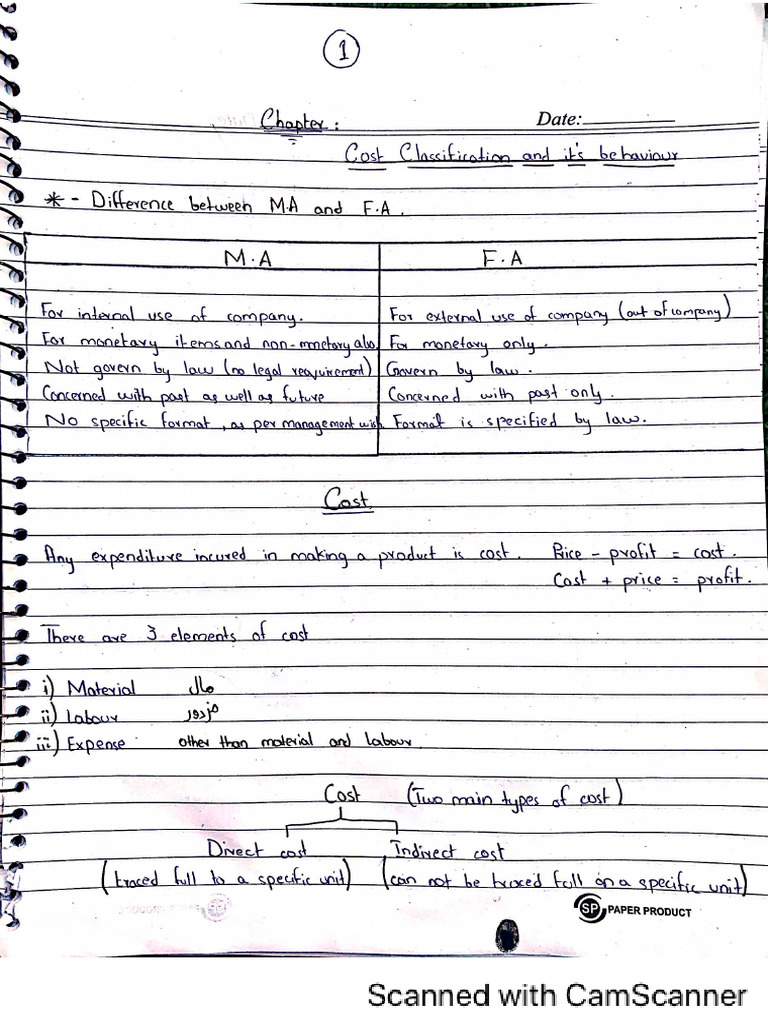 1
Chapter :
Date:
Cost Classification and it's behaviour
* - Difference between M.A and F.A.
M.A F.A
For internal use of company. For external use of company (out of company)
For monetary items and non-monetary also. For monetary only.
Not govern by law (no legal requirement) Govern by law.
Concerned with past as well as future Concerned with past only.
No specific format, as per management wish Format is specified by law.
Cost
Any expenditure incured in making a product is cost. Price - profit = cost.
Cost + price = profit.
There are 3 elements of cost
i) Material مال
ii) Labour مزدور
iii) Expense other than material and labour.
Cost (Two main types of cost)
Direct cost Indirect cost
(traced full to a specific unit) (can not be traced full on a specific unit)
SP PAPER PRODUCT
Scanned with CamScanner